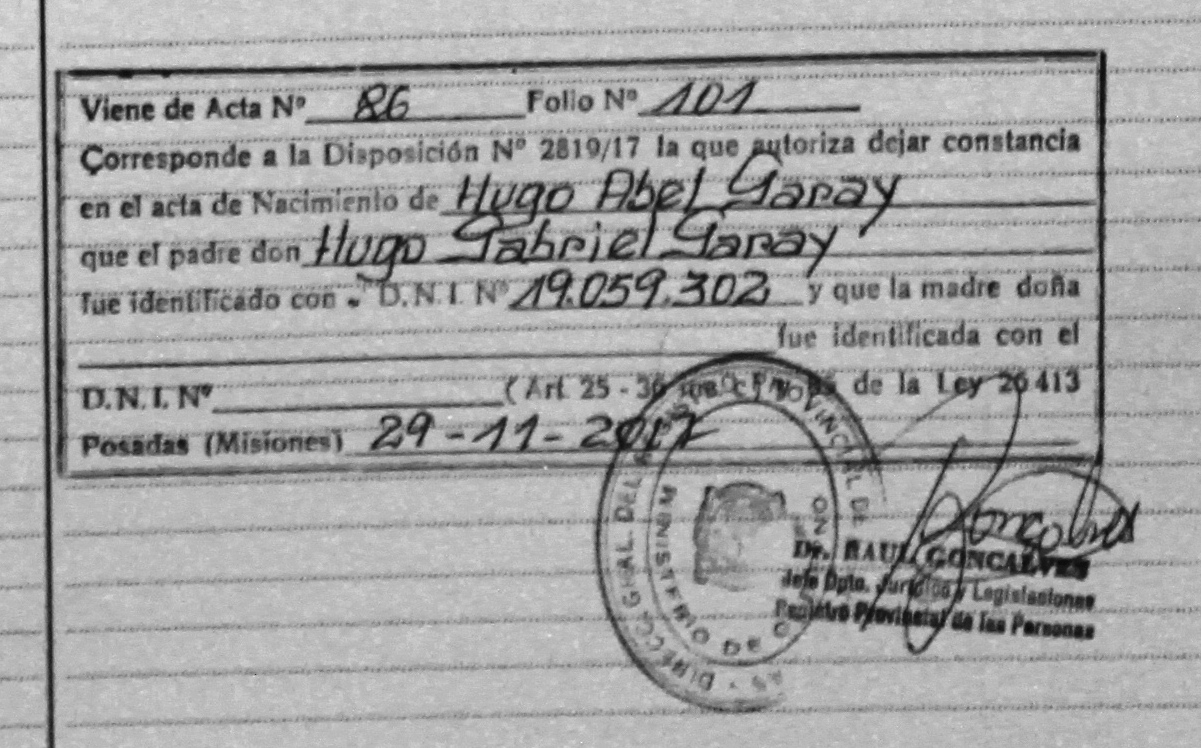 Viene de Acta Nº 86 Folio Nº 101
Corresponde a la Disposición Nº 2819/17 la que autoriza dejar constancia
en el acta de Nacimiento de Hugo Abel Garay
que el padre don Hugo Gabriel Garay
fue identificado con D.N.I. Nº 19.059.302 y que la madre doña
fue identificada con el
D.N.I. Nº (Art. 25 - 36 de la Ley 26413
Posadas (Misiones) 29-11-2017
DIRECC. GRAL. DEL PROVINCIAL DE
MINISTERIO DE
Dr. RAUL GONCALVES
Jefe Dpto. Jurídico y Legislaciones
Registro Provincial de las Personas